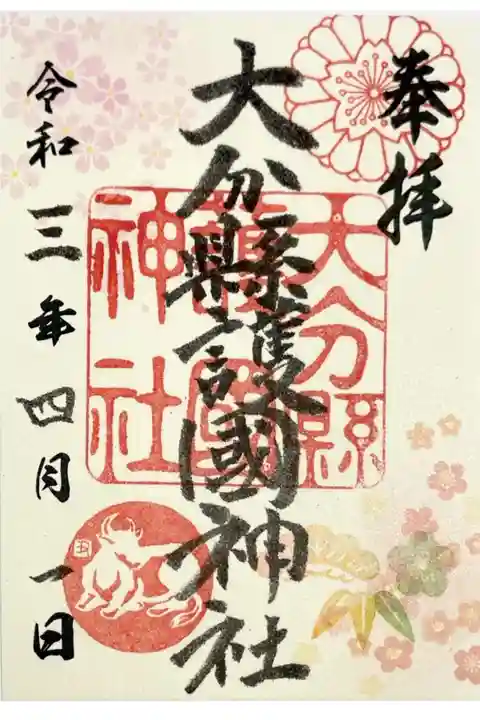 奉拝
大分縣護國神社
大分縣護國神社
令和三年四月一日